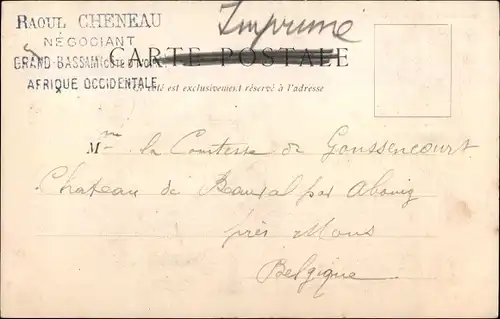 RAOUL CHENEAU
NÉGOCIANT
GRAND-BASSAM (CÔTE D'IVOIRE)
AFRIQUE OCCIDENTALE
Imprimé
CARTE POSTALE
Ce côté est exclusivement réservé à l'adresse
Mme la Comtesse de Goussencourt
Chateau de Beauval par
près Mons
Belgique